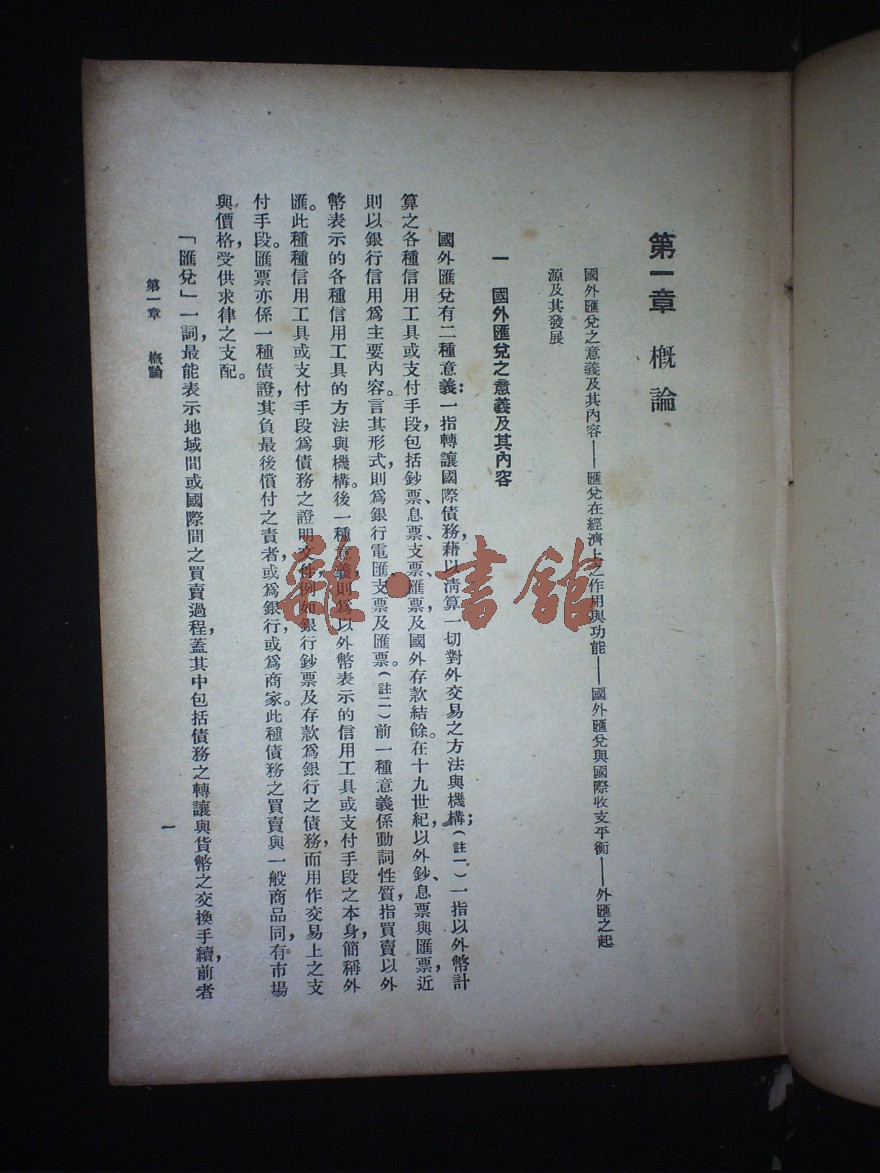 第一章 概論
國外匯兌之意義及其內容——匯兌在經濟上之作用與功能——國外匯兌與國際收支平衡——外匯之起
源及其發展
一 國外匯兌之意義及其內容
國外匯兌有二種意義：一指轉讓國際債務，藉以清算一切對外交易之方法與機構；（註一）一指以外幣計
算之各種信用工具或支付手段，包括鈔票、息票、支票、匯票，及國外存款結餘。在十九世紀，以外鈔、息票與匯票，近
則以銀行信用爲主要內容。言其形式，則爲銀行電匯、支票及匯票。（註二）前一種意義係動詞性質，指買賣以外
幣表示的各種信用工具的方法與機構。後一種意義，則爲以外幣表示的信用工具或支付手段之本身，簡稱外
匯。此種種信用工具或支付手段爲債務之證明文件，例如銀行鈔票及存款爲銀行之債務，而用作交易上之支
付手段。匯票亦係一種債證，其負最後償付之責者，或爲銀行，或爲商家。此種債務之買賣與一般商品同，有市場
與價格，受供求律之支配。
「匯兌」一詞，最能表示地域間或國際間之買賣過程，蓋其中包括債務之轉讓與貨幣之交換手續，前者
第一章 概論
一
雜·書館